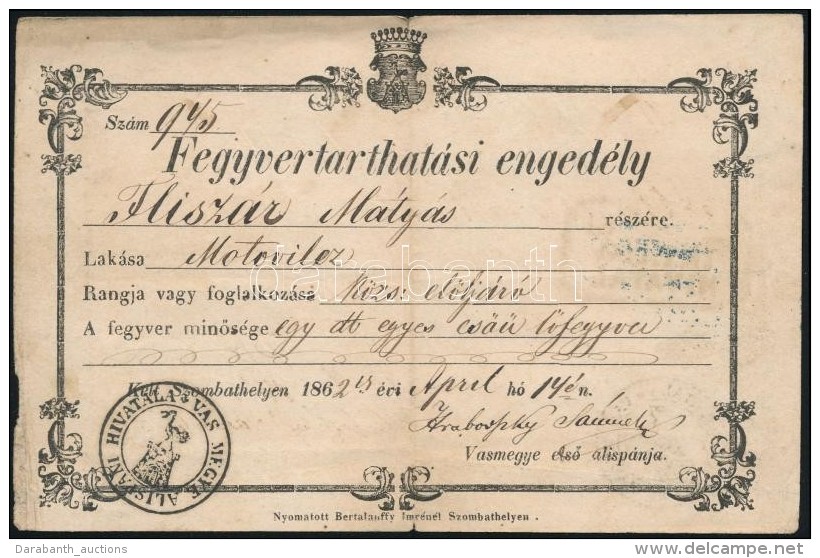 Szám 975
Fegyvertarthatási engedély
Fliszár Mátyás részére.
Lakása Motovilcz
Rangja vagy foglalkozása közs: előljáró
A fegyver minősége egy dt egyes csőű lőfegyver
Kelt Szombathelyen 1862 ik évi April hó 14én.
Hrabovszky Sámuel
Vasmegye első alispánja.
VAS MEGYE ALISPÁNI HIVATALA
Nyomatott Bertalanffy Imrénél Szombathelyen.
darabanth
Darabanth_auctions
delcampe.net